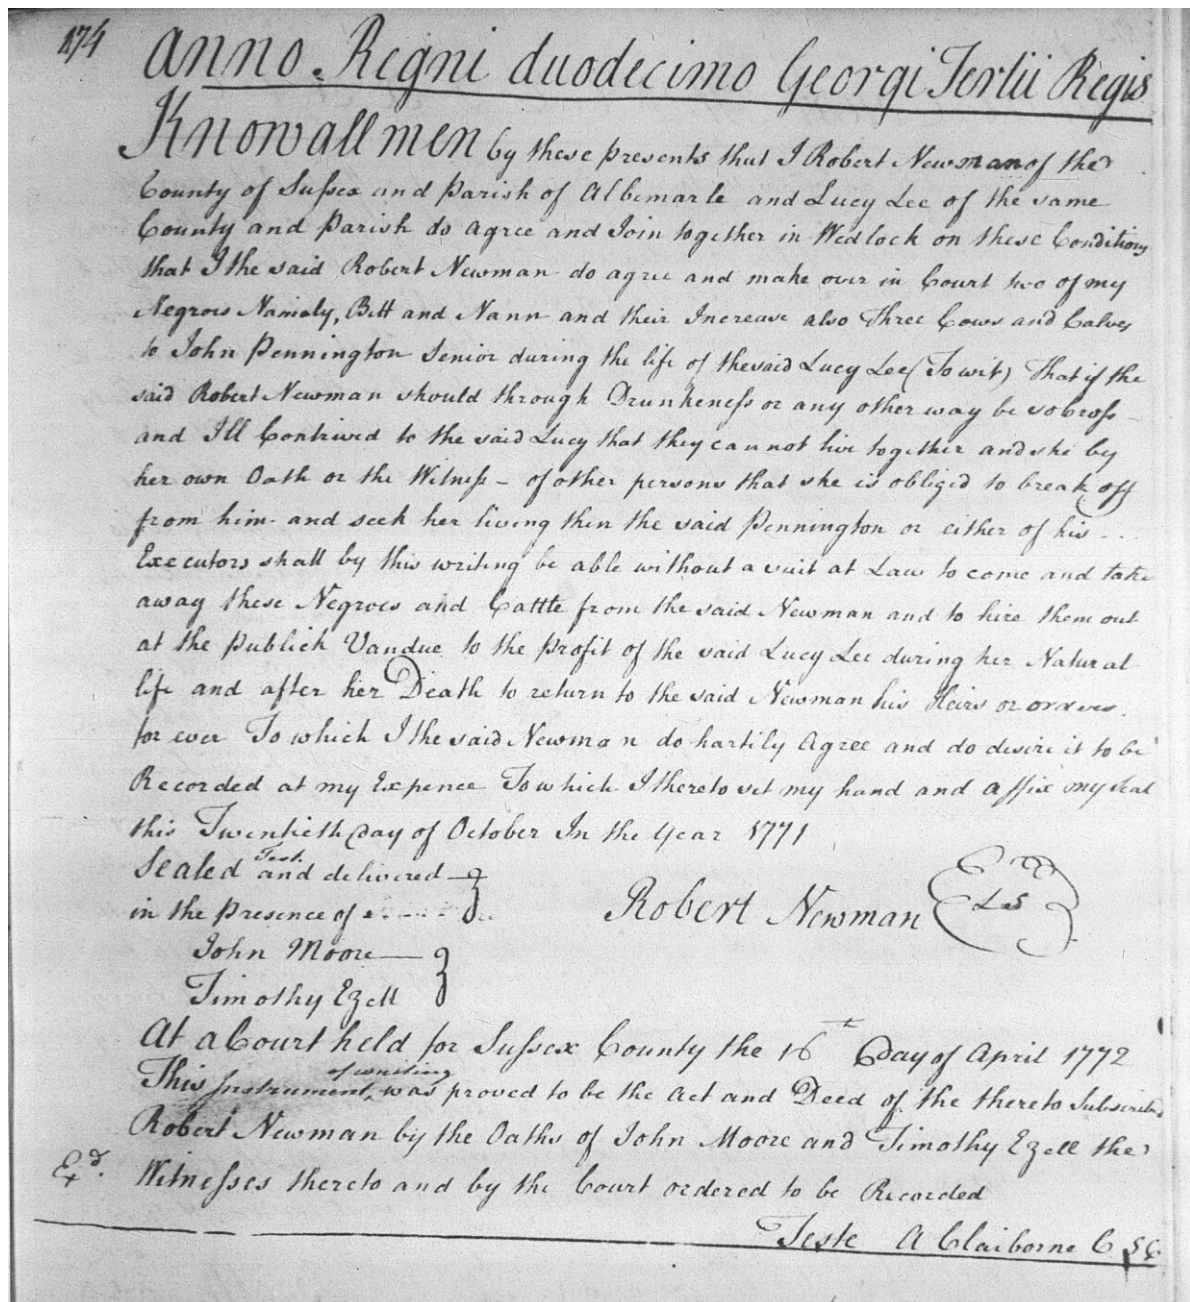 174
Anno Regni duodecimo Georgi Tertii Regis
Know all men by these presents that I Robert Newman of the
County of Sussex and Parish of Albemarle and Lucy Lee of the same
County and Parish do agree and Join together in Wedlock on these Conditions
that I the said Robert Newman do agree and make over in Court two of my
Negroes Namely, Bett and Nann and their Increase also Three Cows and Calves
to John Pennington Senior during the life of the said Lucy Lee (To wit) That if the
said Robert Newman should through Drunkeness or any other way be so Cross
and Ill Contrived to the said Lucy that they cannot live together and she by
her own Oath or the Witness - of other persons that she is obliged to break off
from him and seek her living then the said Pennington or either of his ...
Executors shall by this writing be able without a suit at Law to come and take
away these Negroes and Cattle from the said Newman and to hire them out
at the Publick Vandue to the Profit of the said Lucy Lee during her Natural
life and after her Death to return to the said Newman his Heirs or
for ever To which I the said Newman do hartily Agree and do desire it to be
Recorded at my Expence To which I thereto set my hand and affix my Seal
this Twentieth Day of October In the Year 1771
Test.
Sealed and delivered
in the Presence of
Robert Newman LS
John Moore
Timothy Ezell
At a Court held for Sussex County the 16th Day of April 1772
This Instrument of writing was proved to be the Act and Deed of the thereto Subscribed
Robert Newman by the Oaths of John Moore and Timothy Ezell the
Exd. Witnesses thereto and by the Court ordered to be Recorded
Teste A Claiborne C S C